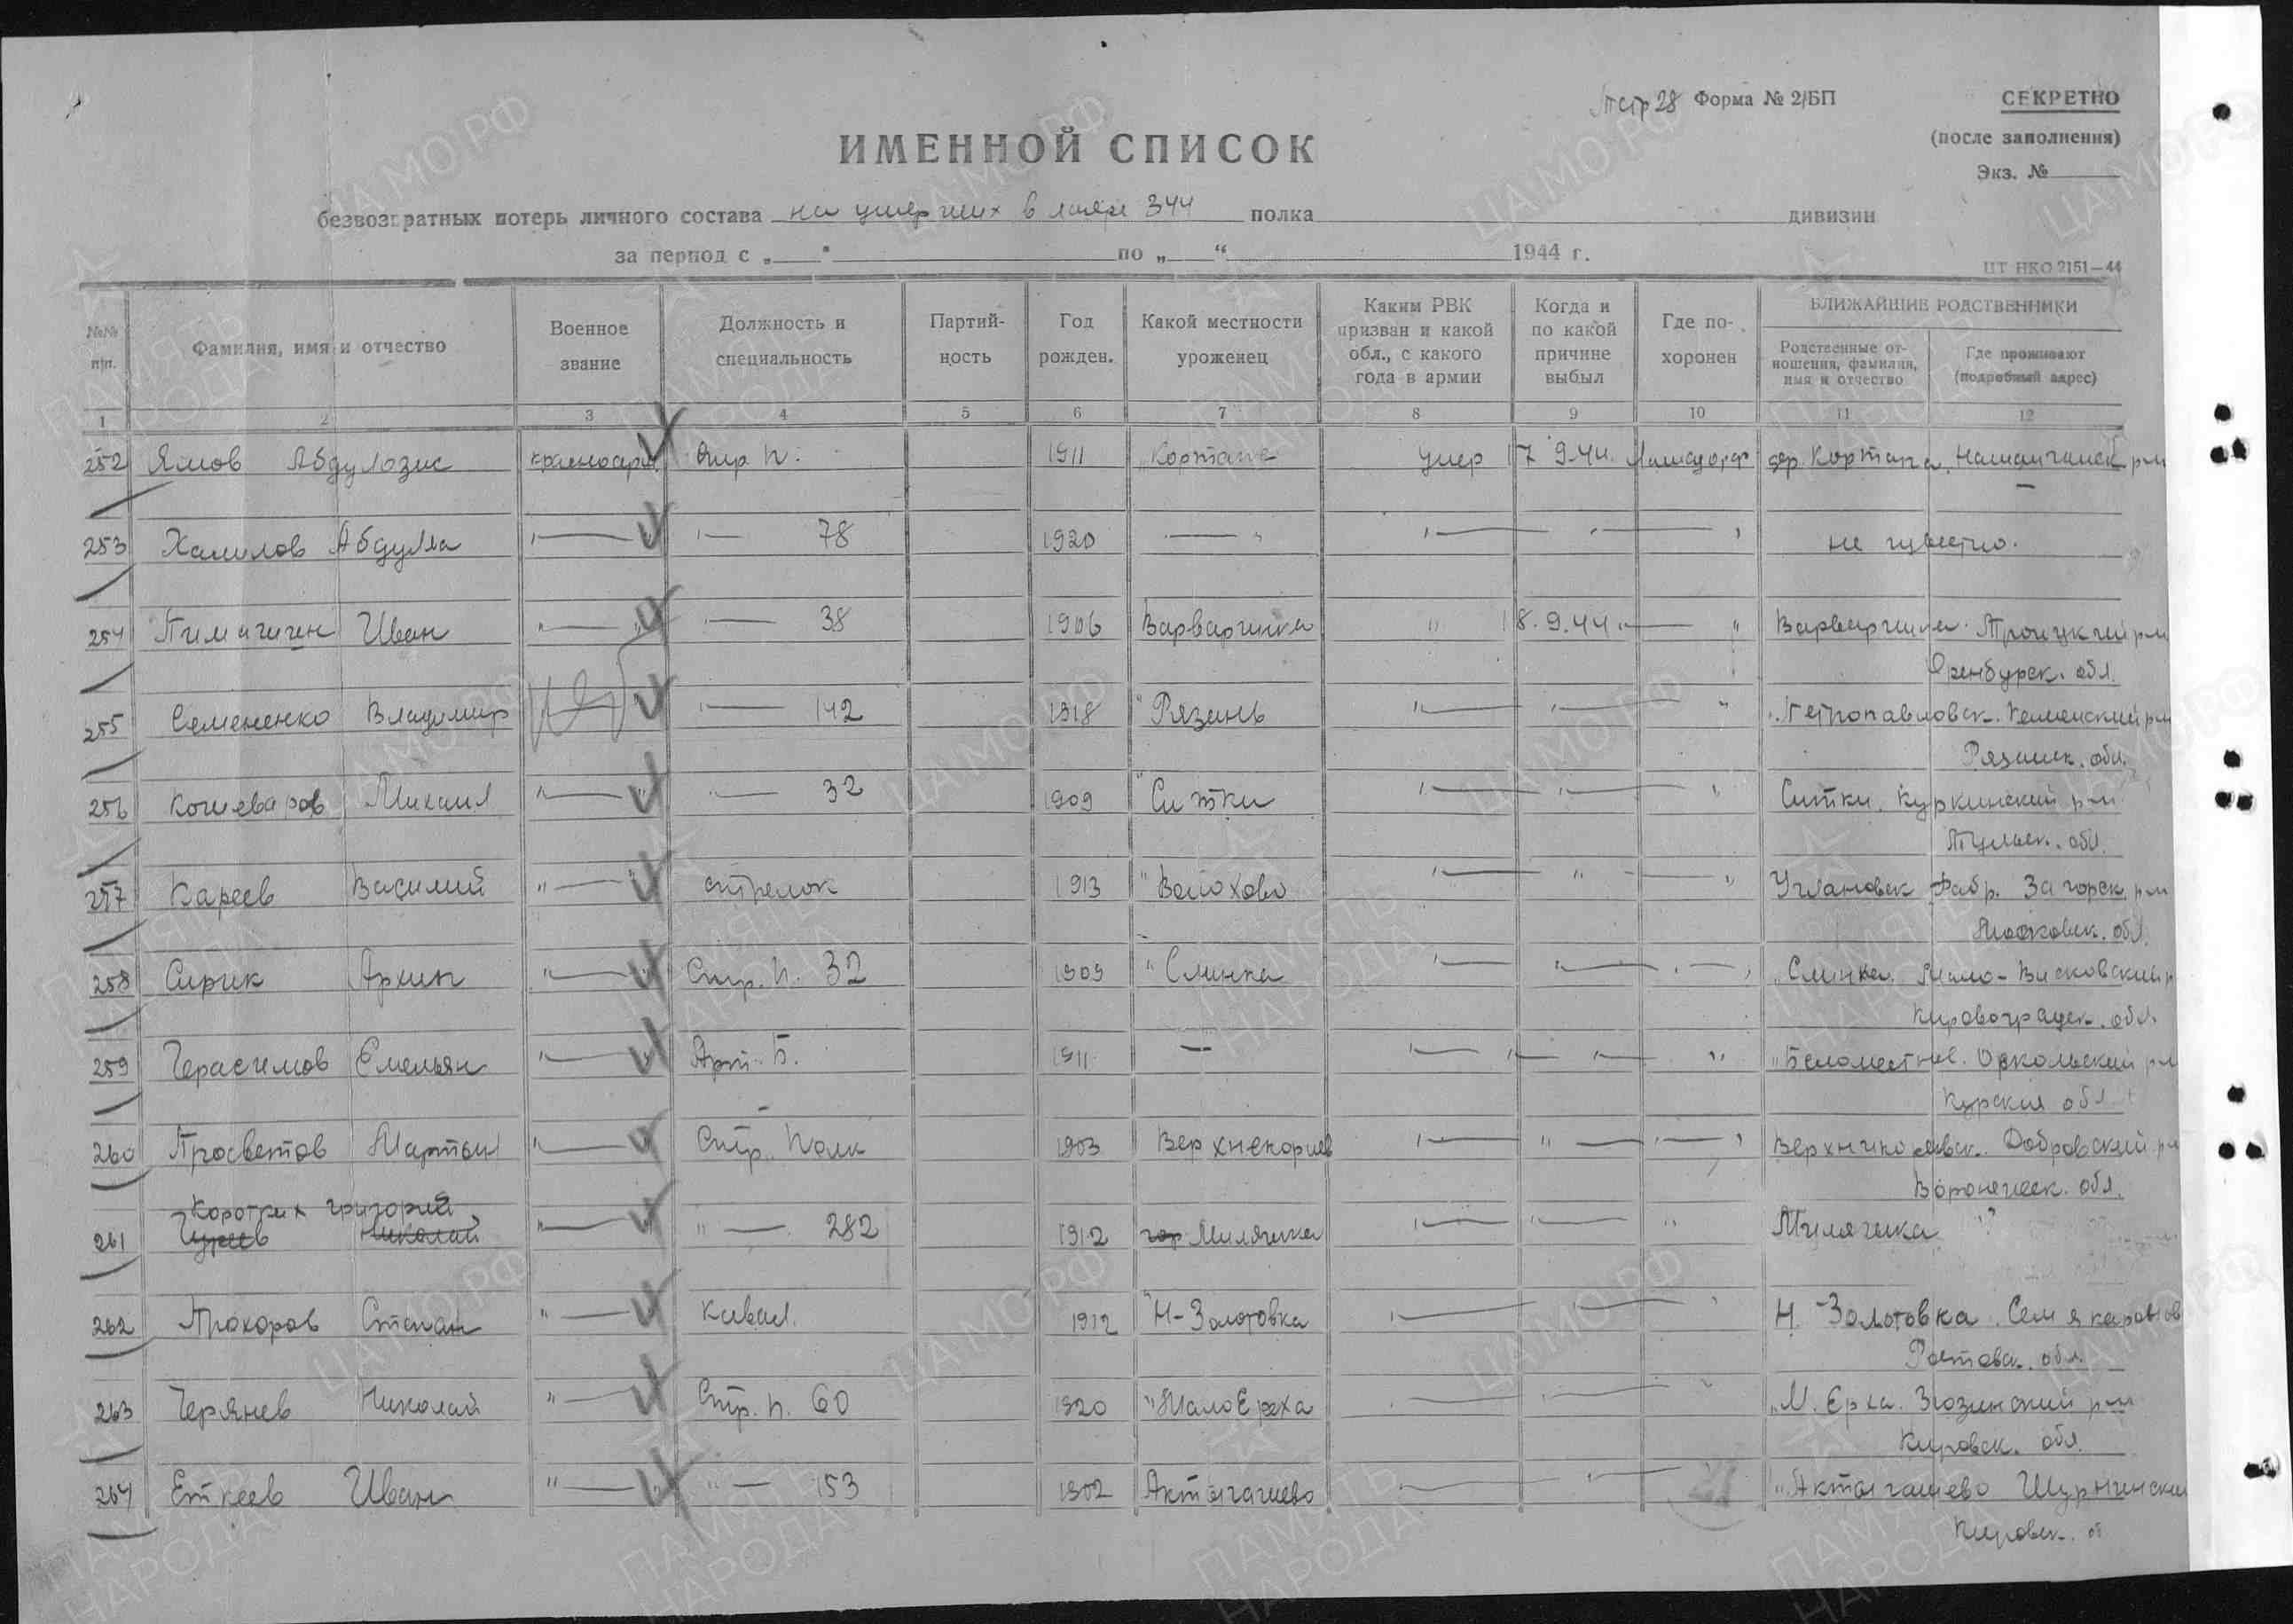 стр 28 Форма № 2/БП
СЕКРЕТНО
(после заполнения)
Экз. №
ИМЕННОЙ СПИСОК
безвозвратных потерь личного состава на умерших в лагере 344 полка дивизии
за период с „ " по „ “ 1944 г.
ЦТ НКО 2151—44
№№ п/п. Фамилия, имя и отчество Военное звание Должность и специальность Партий-ность Год рожден. Какой местности уроженец Каким РВК призван и какой обл., с какого года в армии Когда и по какой причине выбыл Где по-хоронен БЛИЖАЙШИЕ РОДСТВЕННИКИ
Родственные от-ношения, фамилия, имя и отчество Где проживают (подробный адрес)
1 2 3 4 5 6 7 8 9 10 11 12
252 Ямов Абдулозис красноарм. Стр. п. 1911 Кортана умер 17 9.44. дер. Кортана, Наманганск р-н
253 Халилов Абдулла "—" — 78 1920 —" "— — " не известно.
254 Пимичкин Иван "—" — 38 1906 Варваринка " 18.9.44. — " Варваринка. Троицкий р-н
Оренбурск. обл.
255 Семененко Владимир — " — 142 1918 " Рязань "— "— " " Петропавловск. р-н
Рязанск. обл.
256 Кошеваров Михаил "—" — 32 1909 " Ситки "— "— " Ситки. Куркинский р-н
Тульск. обл.
257 Кареев Василий "—" стрелок 1913 " Волохово "— " — " Углановск фабр. Загорск. р-н
Московск. обл.
258 Сирик Архип "—" Стр. п. 32 1909 " Слинка "— "— "—" " Слинка. Мало-Висковский р
Кировоградск. обл.
259 Герасимов Емельян "—" Арт. Б. 1911 — "— "— "— " " Беломестное. Оскольский р-н
Курская обл
260 Просветов Мартын "— " Стр. Полк 1903 Верхнекориев "— " — "— " Добровский р-н
Воронежск. обл.
Коротких Григорий
261 Гуреев Николай "— " " — 282 1912 гор Милячика "— "— " Милячика
262 Прохоров Степан "— " Кавал. 1912 " Н-Золотовка "— "— " Н. Золотовка. Семякаровс
Ростовск. обл.
263 Герянев Николай "— " Стр. п. 60 1920 " МалоЕрха "— "— " " М. Ерха. Зюзинский р-н
Кировск. обл.
264 Еткеев Иван "— " " — 153 1902 Актыгашево "— " — " Актыгашево Шурнинский
Кировск. об
21
ЦАМО.РФ
ПАМЯТЬ НАРОДА